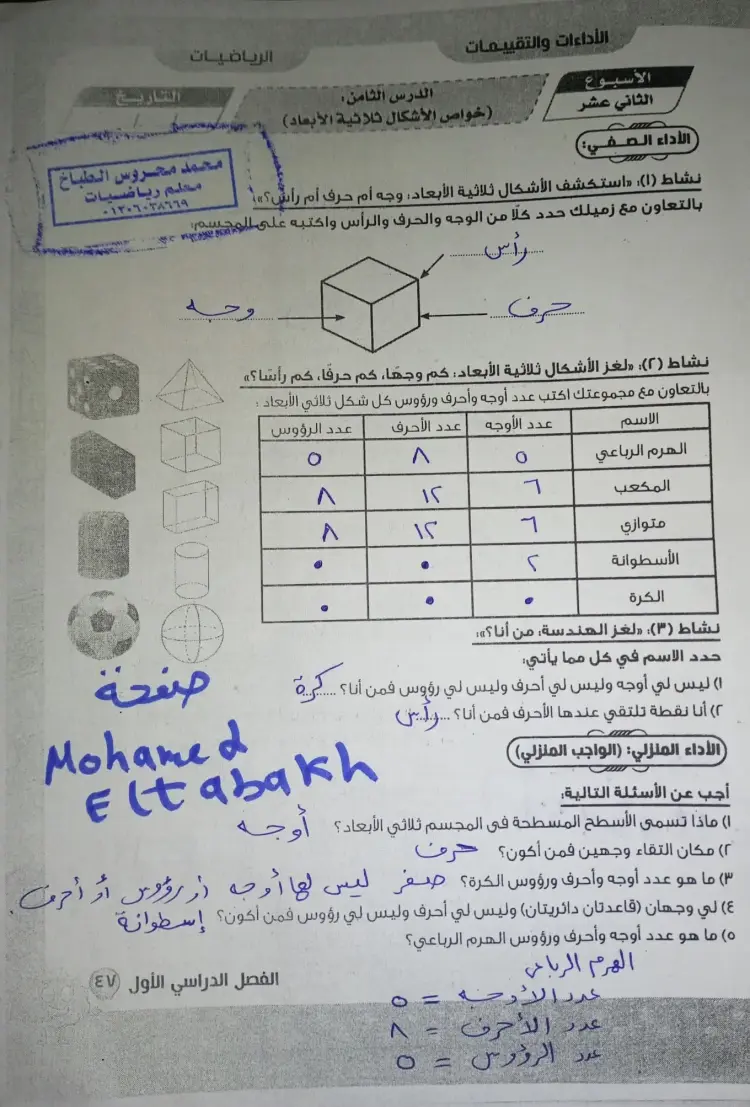 الأداءات والتقييمات
الرياضيات
الأسبوع
الثاني عشر
الدرس الثامن:
(خواص الأشكال ثلاثية الأبعاد)
التاريخ
/ /
محمد محروس الطباخ
معلم رياضيات
الأداء الصفي:
نشاط (١): «استكشف الأشكال ثلاثية الأبعاد: وجه أم حرف أم رأس؟»:
بالتعاون مع زميلك حدد كلًا من الوجه والحرف والرأس واكتبه على المجسم:
رأس
حرف
وجه
نشاط (٢): «لغز الأشكال ثلاثية الأبعاد: كم وجهًا، كم حرفًا، كم رأسًا؟»
بالتعاون مع مجموعتك اكتب عدد أوجه وأحرف ورؤوس كل شكل ثلاثي الأبعاد :
الاسم عدد الأوجه عدد الأحرف عدد الرؤوس
الهرم الرباعي ٥ ٨ ٥
المكعب ٦ ١٢ ٨
متوازي ٦ ١٢ ٨
الأسطوانة ٢ ٠ ٠
الكرة ٠ ٠ ٠
نشاط (٣): «لغز الهندسة: من أنا؟»:
حدد الاسم في كل مما يأتي:
١) ليس لي أوجه وليس لي أحرف وليس لي رؤوس فمن أنا؟ كرة
٢) أنا نقطة تلتقي عندها الأحرف فمن أنا؟ رأس
صفحة
Mohamed
Eltabakh
الأداء المنزلي: (الواجب المنزلي)
أجب عن الأسئلة التالية:
١) ماذا تسمى الأسطح المسطحة فى المجسم ثلاثي الأبعاد؟ أوجه
٢) مكان التقاء وجهين فمن أكون؟ حرف
٣) ما هو عدد أوجه وأحرف ورؤوس الكرة؟ صفر ليس لها أوجه أو رؤوس أو أحرف.
٤) لي وجهان (قاعدتان دائريتان) وليس لي أحرف وليس لي رؤوس فمن أكون؟ إسطوانة
٥) ما هو عدد أوجه وأحرف ورؤوس الهرم الرباعي؟
الهرم الرباعى
عدد الأوجه = ٥
عدد الأحرف = ٨
عدد الرؤوس = ٥
الفصل الدراسي الأول ٤٧